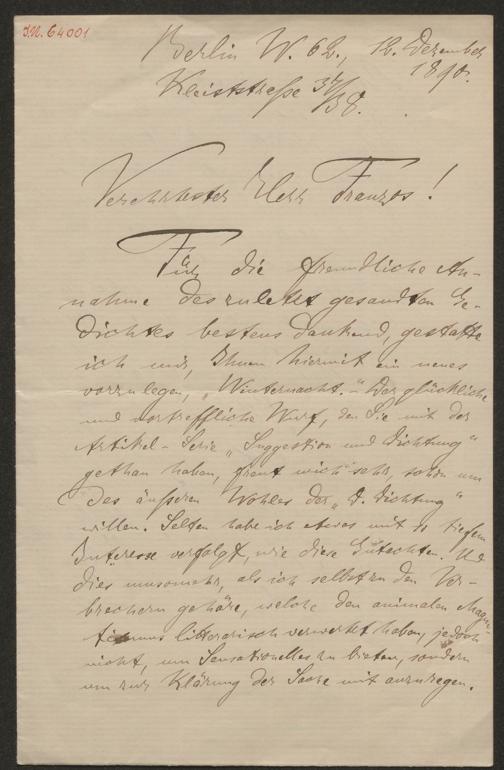 J.N. 64001
Berlin W. 62., 12. Dezember
1890.
Kleiststraße 37/38.
Verehrtester Herr Franzos!
Für die freundliche An-
nahme des zuletzt gesandten Ge-
dichtes bestens dankend, gestatte
ich mir, Ihnen hiermit ein neues
vorzulegen, „Winternacht." – Der glückliche
und vortreffliche Wurf, den Sie mit der
Artikel-Serie „Suggestion und Dichtung"
gethan haben, freut mich sehr, schon um
des äußeren Wohles der „D. Dichtung"
willen. Selten habe ich etwas mit so tiefem
Interesse verfolgt, wie diese Gutachten. Und
dies umsomehr, als ich selbst zu den Ver-
brechern gehöre, welche den animalen Magne-
tismus litterarisch verwerthet haben, jedoch
nicht, um Sensationelles zu bieten, sondern
um zur Klärung der Sache mit anzuregen.